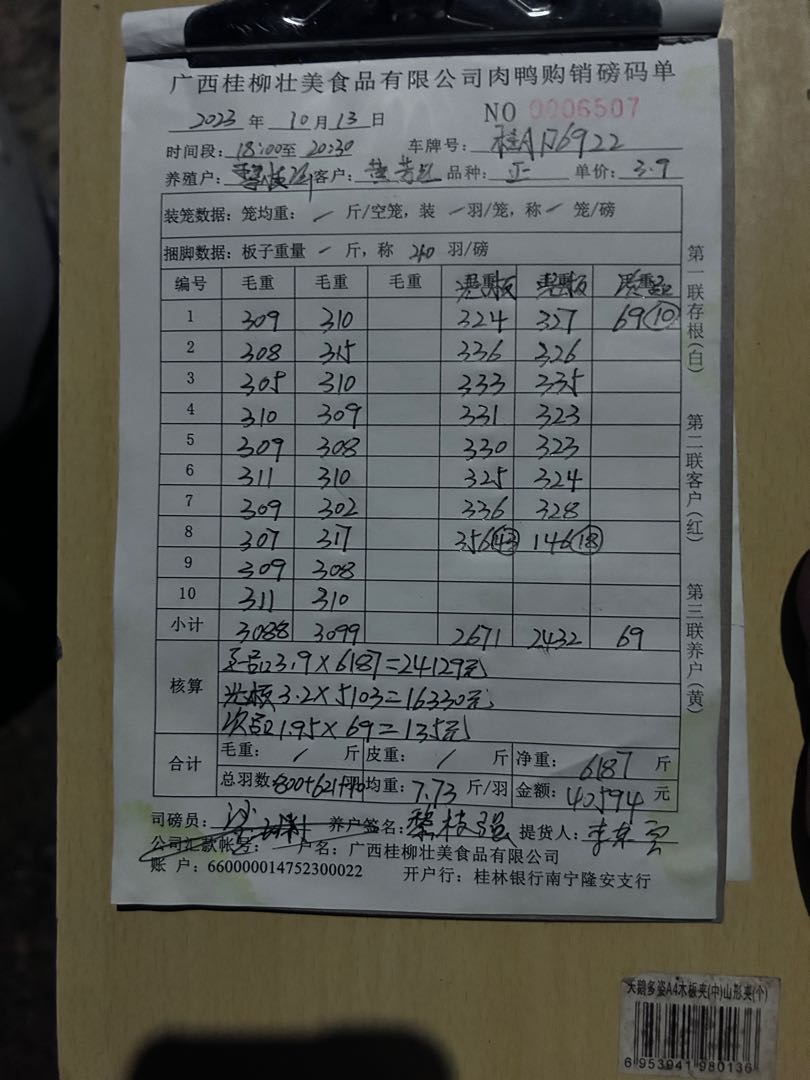 广西桂柳壮美食品有限公司肉鸭购销磅码单
2023 年 10 月 13 日 NO 0006507
时间段: 18:00至 20:30 车牌号: 桂A 6922
养殖户: 客户: 黄 品种: 正 单价: 3.9
装笼数据: 笼均重: / 斤/空笼, 装 / 羽/笼, 称 / 笼/磅
捆脚数据: 板子重量 / 斤, 称 240 羽/磅
编号 毛重 毛重 毛重
1 309 310 324 327 69 ⑩
2 308 315 336 326
3 305 310 333 335
4 310 309 331 323
5 309 308 330 323
6 311 310 325 324
7 309 302 336 328
8 307 317 356 ㊸ 146 ⑱
9 309 308
10 311 310
小计 3088 3099 2671 2432 69
核算
正品3.9×6187=24129元
光板3.2×5103=16330元
次品1.95×69=135元
合计
毛重: / 斤 皮重: / 斤 净重: 6187 斤
总羽数: 800+621+ 均重: 7.73 斤/羽 金额: 40594 元
司磅员: 养户签名: 黎枝强 提货人:
公司汇款帐号: 户名: 广西桂柳壮美食品有限公司
账 户: 660000014752300022 开户行: 桂林银行南宁隆安支行
第一联存根(白) 第二联客户(红) 第三联养户(黄)
天鹅多姿A4木板夹(中)山形夹(个)
6 953941 980136